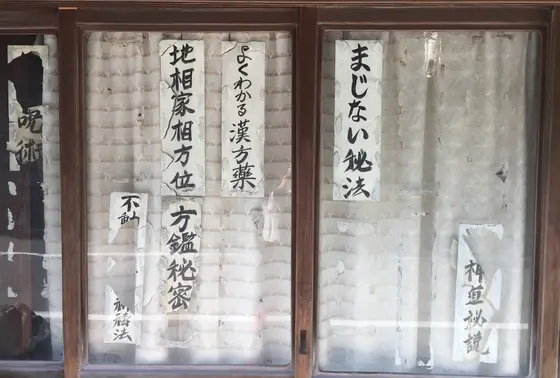 秘説
まじない秘法
よくわかる漢方薬
地相家相方位
方鑑秘密
不動
禱法
呪術